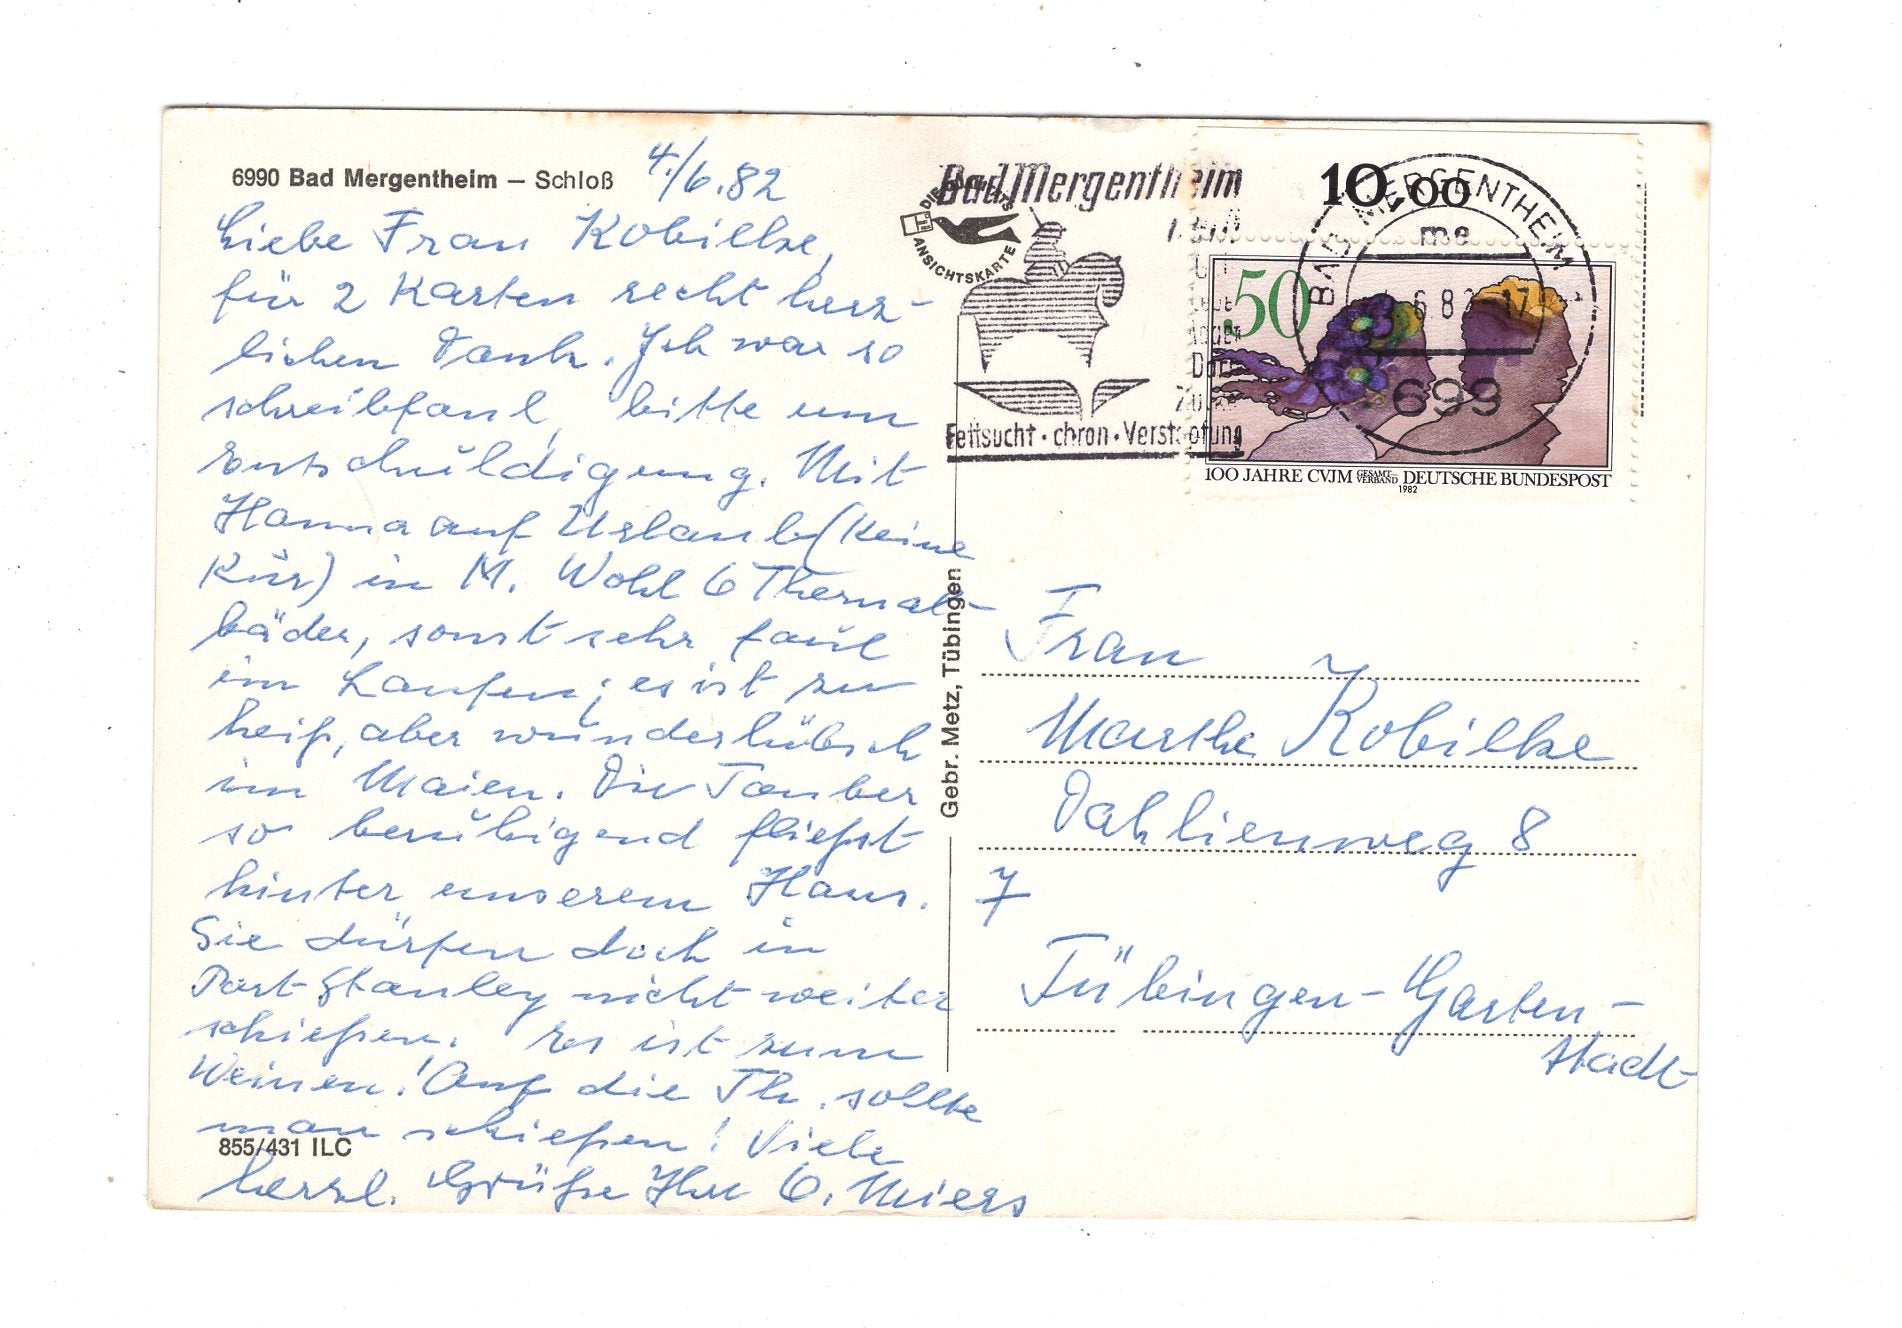 6990 Bad Mergentheim – Schloß
4./6.82
Liebe Frau Kobilke,
für 2 Karten recht herz-
lichen Dank. Ich war so
schreibfaul, bitte um
Entschuldigung. Mit
Hanna auf Urlaub (keine
Kur) in M. Wohl 6 Thermal-
bäder, sonst sehr faul
im Laufen; es ist zu
heiß, aber wunderhübsch
im Maien. Die Tauber
so beruhigend fließt
hinter unserem Haus.
Sie dürfen doch in
Port-Stanley nicht weiter
schießen. Es ist zum
Weinen! Auf die Th. sollte
man schießen! Viele
herzl. Grüße Ihre G. Miers
855/431 ILC
Gebr. Metz, Tübingen
Bad Mergentheim
ANSICHTSKARTE
Fettsucht · chron · Verstopfung
10,00
BAD MERGENTHEIM
me
6.82 17
699
50
100 JAHRE CVJM GESAMT-VERBAND DEUTSCHE BUNDESPOST
1982
Frau
Marthe Kobilke
Dahlienweg 8
7
Tübingen-Garten-
stadt